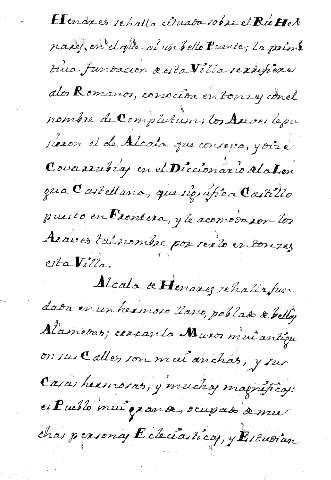 Henares se halla situada sobre el Rio He-
nares, en el que ai un bello Puente; la primi
tiva fundacion de esta Villa se refiere
a los Romanos, conocida entonzes con el
nombre de Complutum; los Araves le pu-
sieron el de Alcala que conserva, y dize
Covarrubias en el Diccionario de la Len
gua Castellana, que significa Castillo
puesto en Frontera, y le acomodaron los
Araves tal nombre por serlo entonzes
esta Villa.
Alcala de Henares se halla fun-
dada en un hermoso llano, poblado de bellas
Alamedas; cercan la Muros mui antiguo
on sus Calles son mui anchas, y sus
Casas hermosas, y muchas magnificas:
es Pueblo mui grande, ocupado de mu
chas personas Eclesiasticas, y Estudian